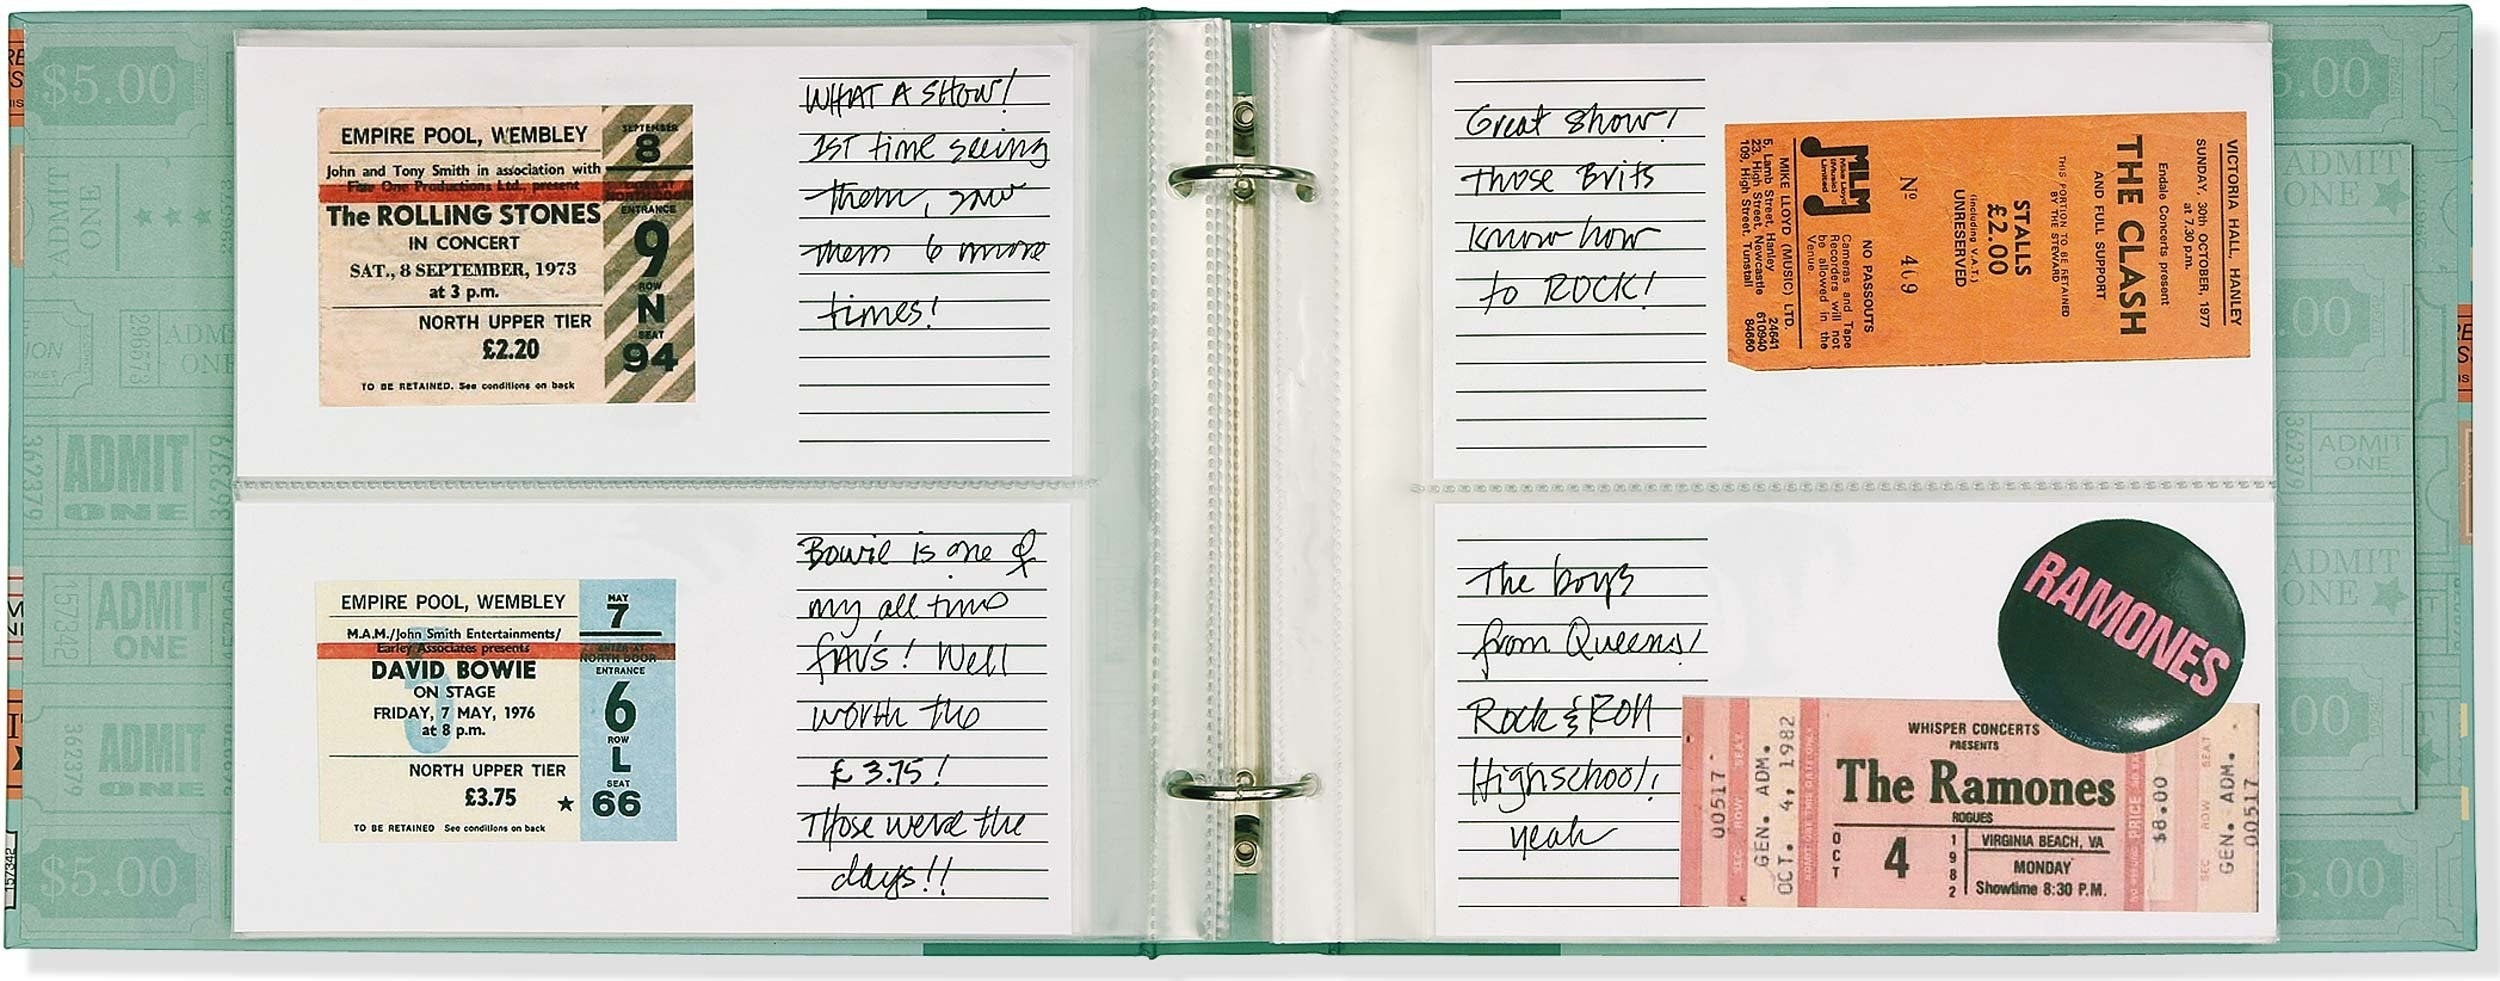 EMPIRE POOL, WEMBLEY
John and Tony Smith in association with
Five One Productions Ltd., present
The ROLLING STONES
IN CONCERT
SAT., 8 SEPTEMBER, 1973
at 3 p.m.
NORTH UPPER TIER
£2.20
TO BE RETAINED. See conditions on back
SEPTEMBER
8
ENTER AT
NORTH DOOR
ENTRANCE
9
ROW
N
SEAT
94
WHAT A SHOW!
1ST time seeing
them, saw
them 6 more
times!
EMPIRE POOL, WEMBLEY
M.A.M./John Smith Entertainments/
Earley Associates presents
DAVID BOWIE
ON STAGE
FRIDAY, 7 MAY, 1976
at 8 p.m.
NORTH UPPER TIER
£3.75
TO BE RETAINED See conditions on back
MAY
7
ENTER AT
NORTH DOOR
ENTRANCE
6
ROW
L
SEAT
66
Bowie is one of
my all time
FAV'S! Well
worth the
£3.75!
Those were the
days!!
Great show!
Those Brits
know how
to ROCK!
VICTORIA HALL, HANLEY
SUNDAY, 30th OCTOBER, 1977
at 7.30 p.m.
Endale Concerts present
THE CLASH
AND FULL SUPPORT
THIS PORTION TO BE RETAINED
BY THE STEWARD
STALLS
£2.00
(including V.A.T.)
UNRESERVED
Nº 409
NO PASSOUTS
Cameras and Tape
Recorders will not
be allowed in the
Venue.
MLM
Mike Lloyd
(Music)
Limited
MIKE LLOYD (MUSIC) LTD.
5, Lamb Street, Hanley 24641
23, High Street, Newcastle 610940
109, High Street, Tunstall 84660
The boys
from Queens!
Rock & Roll
Highschool!
yeah
RAMONES
WHISPER CONCERTS
PRESENTS
The Ramones
ROGUES
OCT 4 1982
VIRGINIA BEACH, VA
MONDAY
Showtime 8:30 P.M.
00517
SEC ROW SEAT
GEN. ADM.
OCT. 4, 1982
PRICE
$8.00
SEC ROW SEAT
GEN. ADM.
00517
$5.00
ADMIT
ONE
296573
ADMIT
ONE
362379
157342
ADMIT
ONE
362379
ADMIT
ONE
$5.00
157342
5.00
ADMIT
ONE
362379
ADMIT
ONE
ADMIT
ONE
5.00